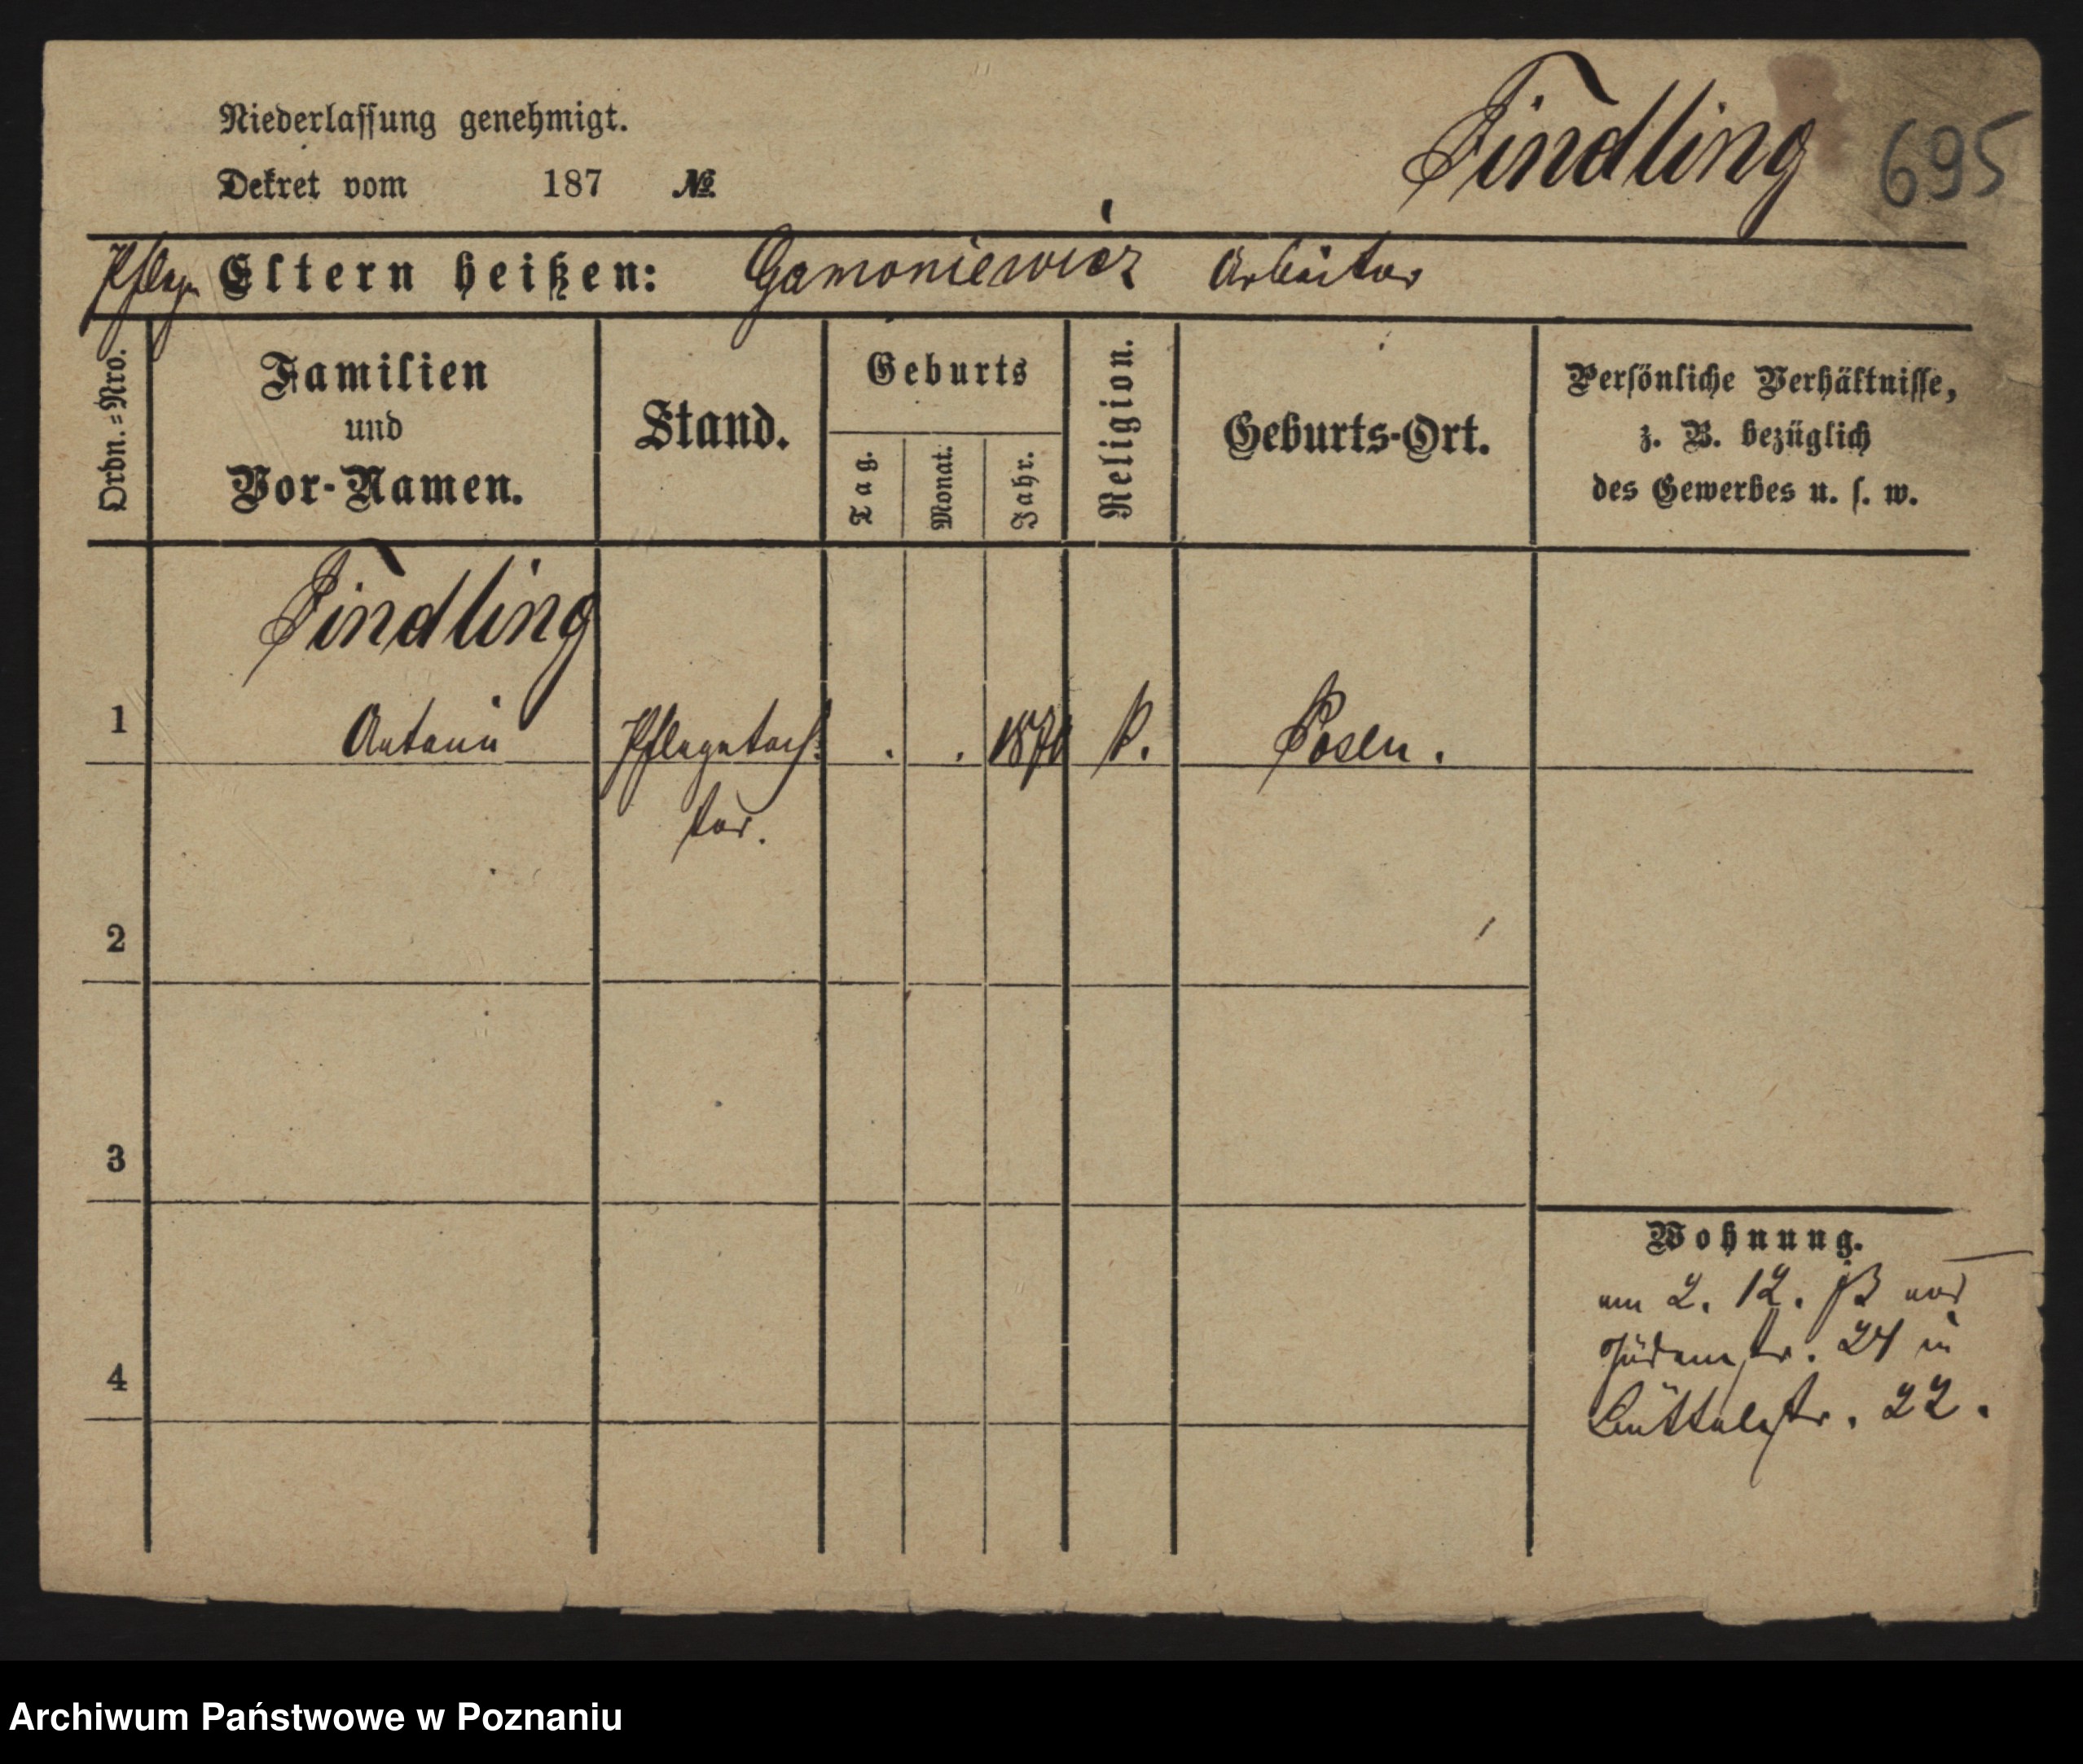 Niederlassung genehmigt.
Dekret vom 187 №
Findling 695
Pflege Eltern heißen: Gamoniewicz Arbeiter
Ordn.=Nro.
Familien
und
Vor-Namen.
Stand.
Geburts
Tag.
Monat.
Jahr.
Religion.
Geburts-Ort.
Persönliche Verhältnisse,
z. B. bezüglich
des Gewerbes u. s. w.
Findling
1 Antonie Pflegetoch= . . 187 k. Posen.
ter.
2
3
4
Wohnung.
am 2. 12. von
Judenstr. 24 in
Büttelstr. 22.
Archiwum Państwowe w Poznaniu